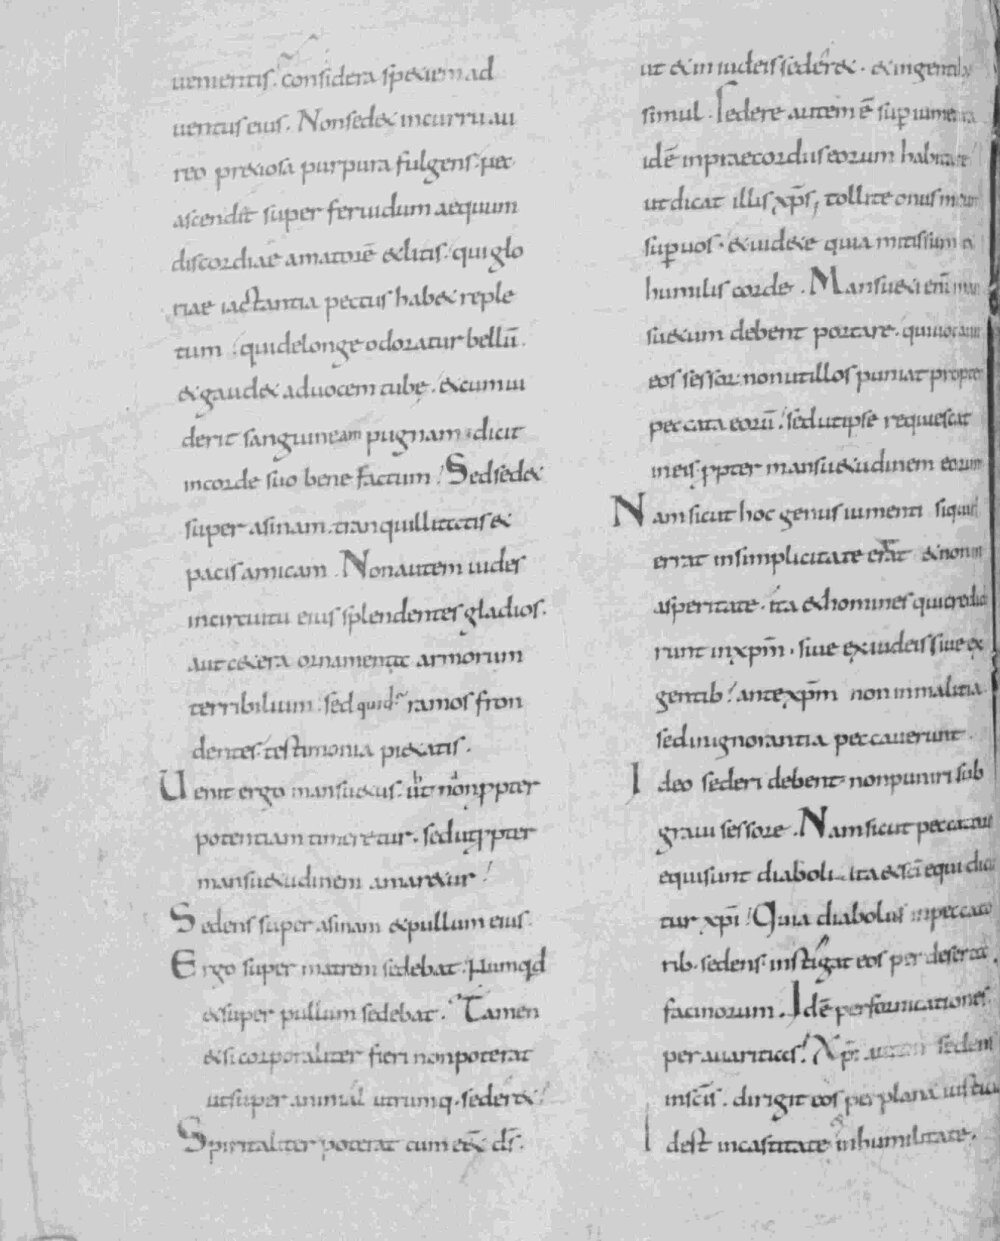 uenientis. considera speciem ad
uentus eius. Non sedet in curru au
reo pretiosa purpura fulgens. nec
ascendit super feruidum aequum
discordiae amatorē et litis. qui glo
riae iactantia pectus habet reple
tum. qui de longe odoratur bellū.
et gaudet ad uocem tubę. et cum ui
derit sanguineam pugnam. dicit
in corde suo bene factum. Sed sedet
super asinam tranquillitatis et
pacis amicam. Non autem uides
in circuitu eius splendentes gladios.
aut cetera ornamenta armorum
terribilium. sed quid ramos fron
dentes. testimonia pietatis.
Uenit ergo mansuetus. ut non ꝓpter
potentiam timeretur. sed ut ꝓpter
mansuetudinem amaretur.
Sedens super asinam et pullum eius.
Ergo super matrem sedebat. Numqd
et super pullum sedebat. Tamen
et si corporaliter fieri non poterat
ut super animal utrumq. sederet.
Spiritaliter poterat cum eēt dš.
ut et in iudeis sederet. et in gentib;
simul. Sedere autem ē suꝑ iumenta
idē in praecordiis eorum habitare
ut dicat illis xp̄s, tollite onus meum
suꝑ uos. et uidete quia mitis sum et
humilis corde. Mansueti eni man
suetum debent portare. qui
eos sessor non ut illos puniat propter
peccata eorū. sed ut ipse requiescat
in eis ꝓpter mansuetudinem eorum
Nam sicut hoc genus iumenti siquid
errat in simplicitate errat et non in
asperitate. ita et homines qui credide
runt in xpm̄. siue ex iudeis siue ex
gentib. ante xpm̄ non in malitia
sed in ignorantia peccauerunt.
Ideo sederi debent non puniri sub
graui sessore. Nam sicut peccatores
equi sunt diaboli. ita et sci equi dicun
tur xpi. Quia diabolus in peccato
rib. sedens instigat eos per deserta
facinorum. Idē per fornicationes
per auaritias. Xps autem sedens
in scis. dirigit eos per plana iustitiae
Id est in castitate in humilitate.